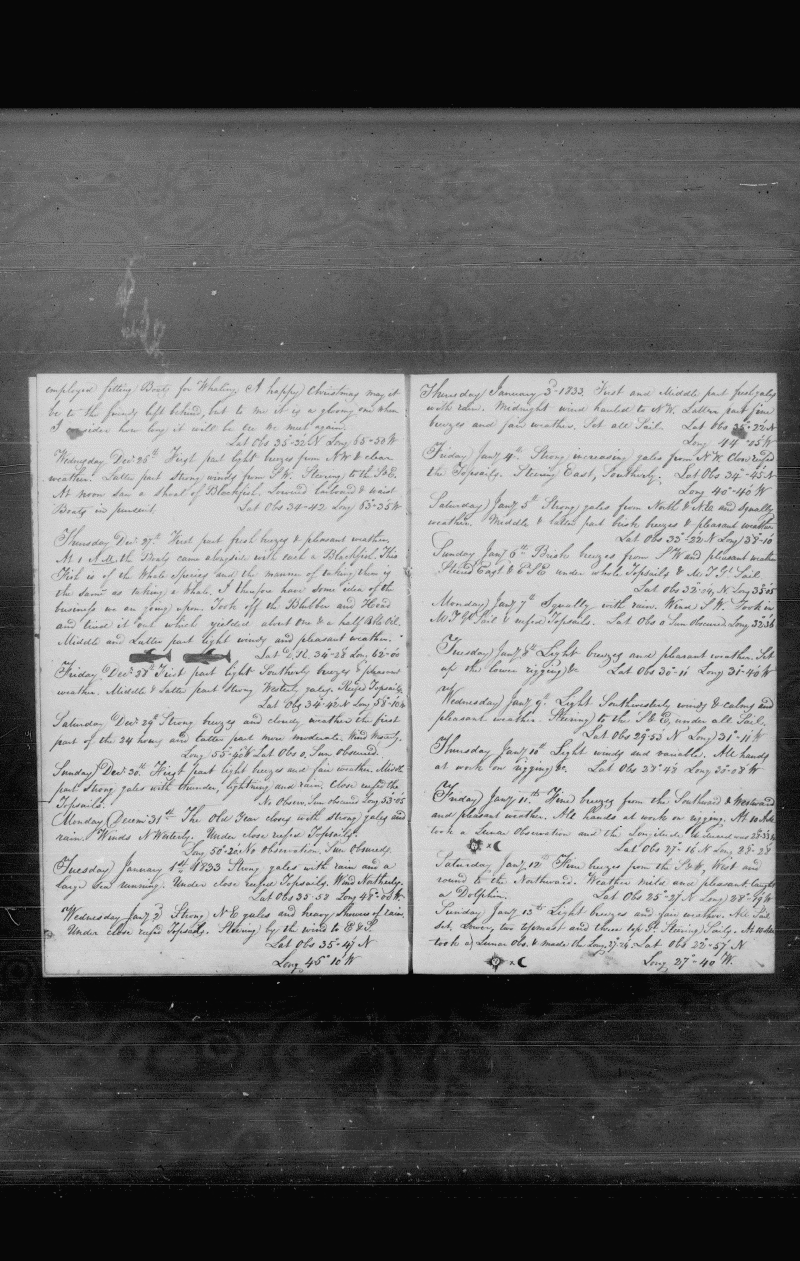 employed fitting Boats for Whaling. A happy Christmas may it
be to the friends left behind, but to me it is a gloomy one when
I consider how long it will be ere we meet again.
Lat Obs 35-32 N Long 65-50 W
Wednesday Dec 26th First part light breezes from NW & clear
weather. Latter part strong winds from S.W. Steering to the S & E.
At noon saw a shoal of Blackfish. Lowered larboard & waist
Boats in pursuit. Lat Obs 34-42. Long 63-35 W
Thursday Dec 27th First part fresh breezes & pleasant weather
At 1 P.M. the Boats came alongside with each a Blackfish. This
Fish is of the Whale Species and the manner of taking them is
the same as taking a whale. I therefore have some idea of the
business we are going upon. Took off the Blubber and Head
and tried it out which yielded about one & a half bbls Oil.
Middle and Latter part light winds and pleasant weather.
Lat D.R. 34-28 Lon 62-00
Friday Dec 28th First part light Southerly breezes & pleasant
weather. Middle & latter part Strong Westerly gales. Reefd Topsails
Lat Obs 34-42 N Long 58-10 W
Saturday Dec 29th Strong breezes and cloudy weather the first
part of the 24 hours and latter part more moderate. Wind Westy.
Long 55-45 W Lat Obs 0, Sun obscured.
Sunday Dec 30th First part light breezes and fair weather. Middle
part strong gales with thunder, lightning and rain. Close reefed the
Topsails. No Observn, Sun obscured Long 53°05
Monday Decem 31st The Old Year closes with strong gales and
rain. Winds N Westerly. Under close reefed Topsails.
Long 50-20. No observation, Sun Obscured.
Tuesday January 1st 1833 Strong gales with rain and a
large Sea running. Under close reefed Topsails. Wind Northerly.
Lat Obs 35-58 Long 48-00 W
Wednesday Jany 2d Strong N.E gales and heavy showers of rain.
Under close reefd Topsails. Steering by the wind to E & S.
Lat Obs 35-47 N
Long 45°10 W
Thursday January 3d 1833. First and Middle part fresh gales
with rain. Midnight wind hauled to N.W. Latter part fine
breezes and fair weather. Set all Sail. Lat Obs 35-22 N
Long 44°05 W
Friday Jany 4th Strong increasing gales from N.W. Close reefed
the Topsails. Steering East, Southerly. Lat Obs 34-45 N
Long 40-40 W
Saturday Jany 5th Strong gales from North & N.E. and Squally
weather. Middle & latter part brisk breezes & pleasant weather
Lat Obs 33-22 N Long 38-10
Sunday Jany 6th Brisk breezes from S W and pleasant weather
Steerd East & E S E under whole Topsails & M.T.G. Sail
Lat Obs 32-04, N Long 35°05
Monday Jany 7th Squally with rain. Wind S.W. Took in
M.T.G. Sail & reefed Topsails. Lat Obs 0 Sun obscured Long 32°36
Tuesday Jany 8th Light breezes and pleasant weather. Set
up the lower rigging &c Lat Obs 30-11 Long 31-40 W
Wednesday Jany 9th Light Southwesterly winds & calms and
pleasant weather. Steering to the S & E, under all Sail.
Lat Obs 29-53 N Long 31°-11 W
Thursday Jany 10th Light winds and variable. All hands
at work on rigging &c. Lat Obs 28°-48 Long 30-08 W
Friday Jany 11th Fine breezes from the Southward & Westward
and pleasant weather. All hands at work on rigging. At 10
took a Lunar Observation and the Longitude deduced was
Lat Obs 27-16 N Long 28-28
Saturday Jany 12 Fine breezes from the S & W, West and
round to the Northward. Weather mild and pleasant. Caught
a Dolphin. Lat Obs 25-27 N Long 28°
Sunday Jany 13th Light breezes and fair weather. All Sail
set, Lower, two topmast and three top Gt. Steering Sails. At 10
took a Lunar Obs. & made the Long. Lat Obs 22-57 N
Long 27°-40 W.